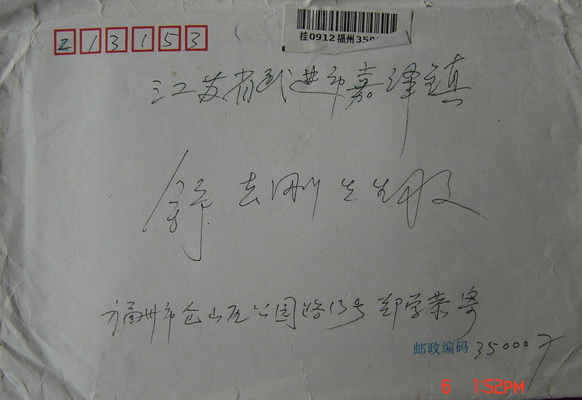 213153
挂0912 福州 350
江苏省武进市嘉泽镇
舒 志刚 先生收
福州市仓山区公园路13号 郑学荣寄
邮政编码 350007
6 1:52PM